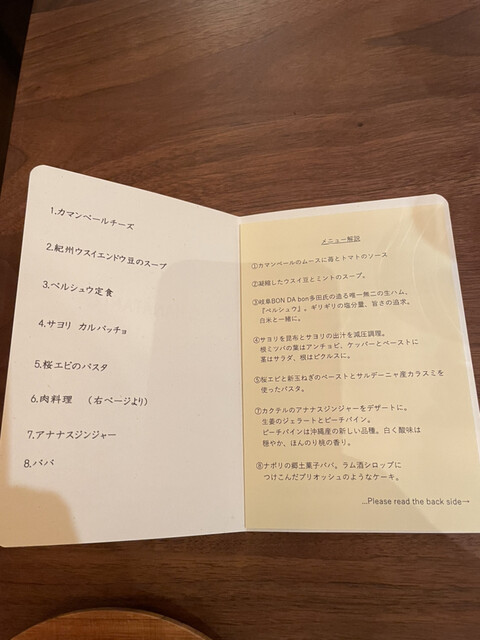 1.カマンベールチーズ
2.紀州ウスイエンドウ豆のスープ
3.ペルシュウ定食
4.サヨリ カルパッチョ
5.桜エビのパスタ
6.肉料理 （右ページより）
7.アナナスジンジャー
8.ババ
メニュー解説
①カマンベールのムースに苺とトマトのソース
②凝縮したウスイ豆とミントのスープ。
③岐阜BON DA bon多田氏の造る唯一無二の生ハム、
『ペルシュウ』。ギリギリの塩分量、旨さの追求。
白米と一緒に。
④サヨリを昆布とサヨリの出汁を減圧調理。
根ミツバの葉はアンチョビ、ケッパーとペーストに
茎はサラダ、根はピクルスに。
⑤桜エビと新玉ねぎのペーストとサルデーニャ産カラスミを
使ったパスタ。
⑦カクテルのアナナスジンジャーをデザートに。
生姜のジェラートとピーチパイン。
ピーチパインは沖縄産の新しい品種。白く酸味は
穏やか、ほんのり桃の香り。
⑧ナポリの郷土菓子ババ。ラム酒シロップに
つけこんだブリオッシュのようなケーキ。
...Please read the back side→